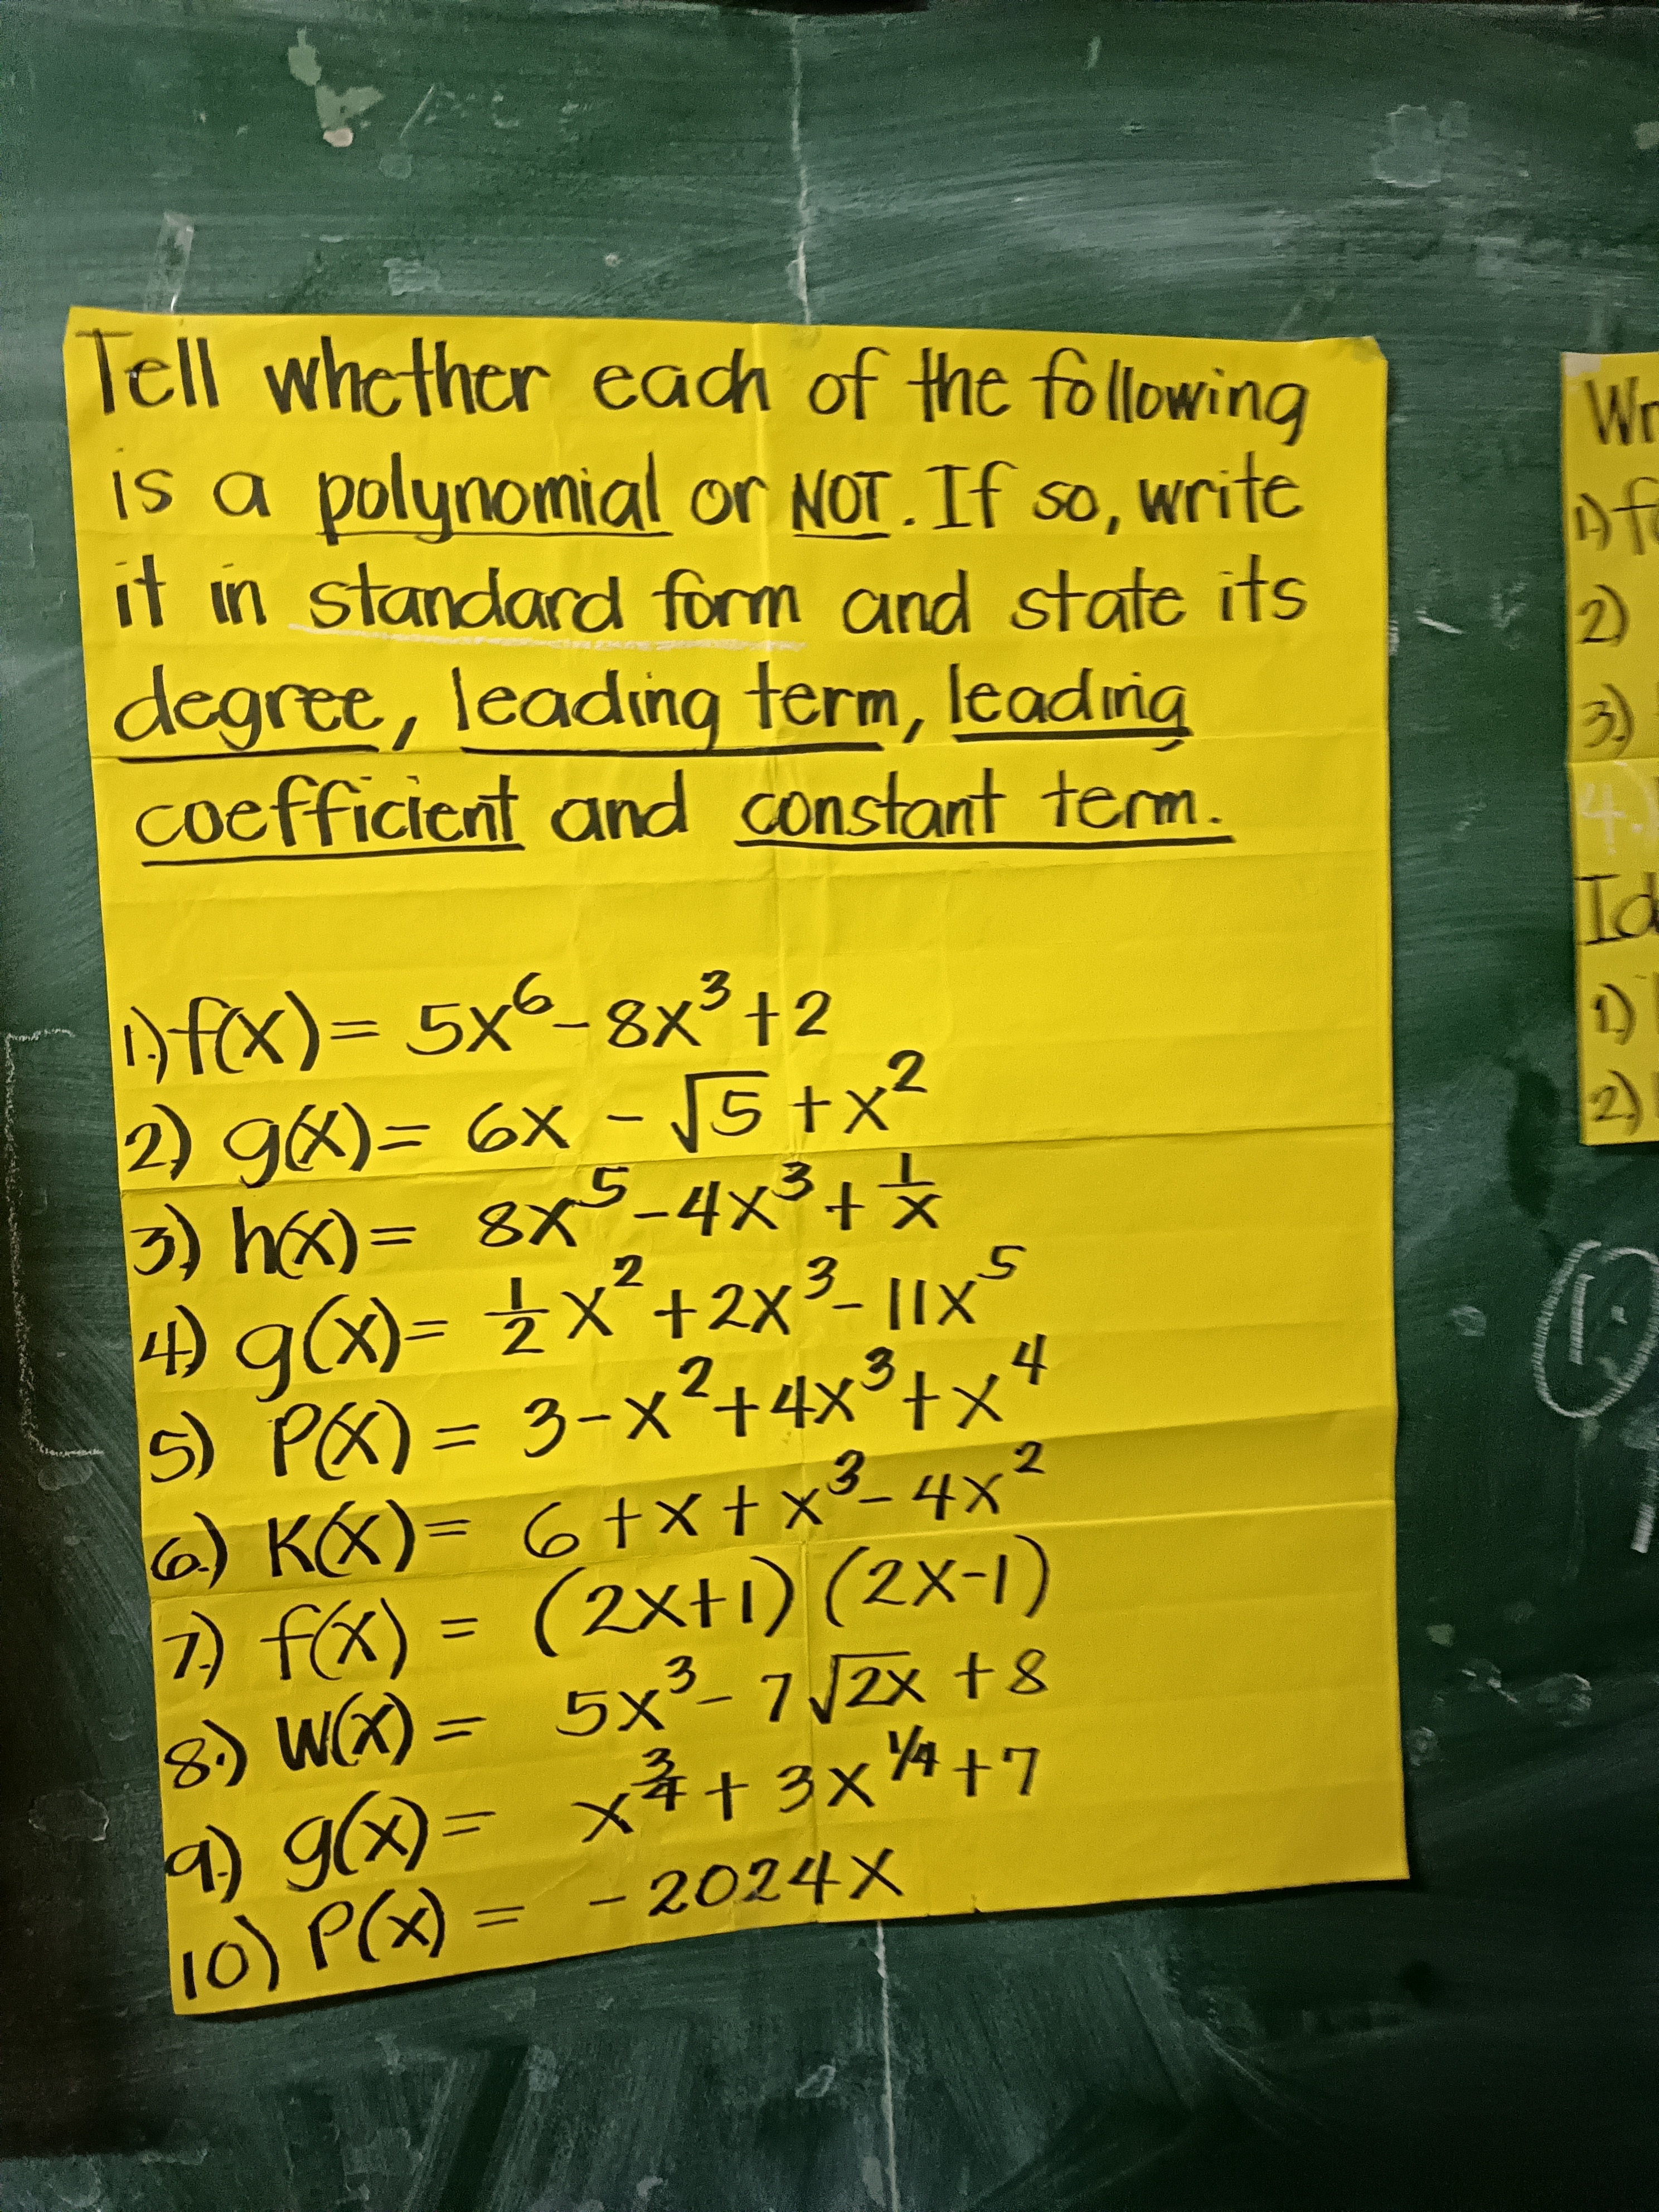 Tell whether each of the following
is a polynomial or NOT. If so, write
it in standard form and state its
degree, leading term, leading
coefficient and constant term.
1.) f(x) = 5x⁶ - 8x³ + 2
2.) g(x) = 6x - √5 + x²
3.) h(x) = 8x⁵ - 4x³ + 1/x
4.) g(x) = 1/2 x² + 2x³ - 11x⁵
5) P(x) = 3 - x² + 4x³ + x⁴
6.) K(x) = 6 + x + x³ - 4x²
7.) f(x) = (2x+1) (2x-1)
8.) W(x) = 5x³ - 7√2x + 8
9.) g(x) = x^3/4 + 3x^1/4 + 7
10) P(x) = -2024x
1.)
2)
3.)
4.)
1)
2.)